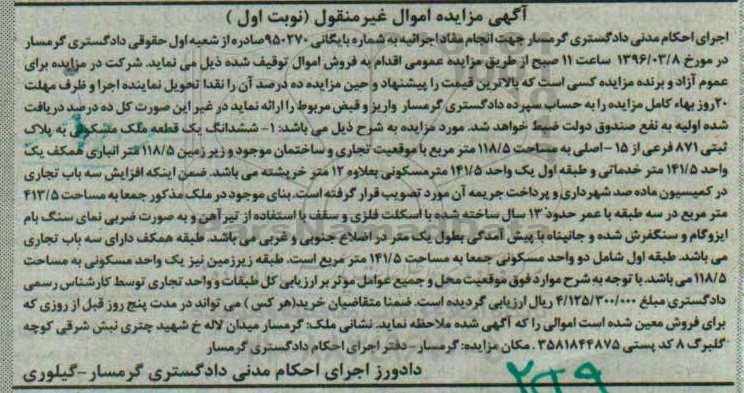 آگهی مزایده اموال غیرمنقول (نوبت اول )
اجرای احکام مدنی دادگستری گرمسار جهت انجام مفاد اجرائیه به شماره بایگانی ۹۵۰۲۷۰صادره از شعبه اول حقوقی دادگستری گرمسار
در مورخ ۱۳۹۶/۰۳/۸ ساعت ۱۱ صبح از طریق مزایده عمومی اقدام به فروش اموال توقیف شده ذیل می نماید. شرکت در مزایده برای
عموم آزاد و برنده مزایده کسی است که بالاترین قیمت را پیشنهاد و حین مزایده ده درصد آن را نقدا تحویل نماینده اجرا و ظرف مهلت
۲۰روز بهاء کامل مزایده را به حساب سپرده دادگستری گرمسار واریز و قبض مربوط را ارائه نماید در غیر این صورت کل ده درصد دریافت
شده اولیه به نفع صندوق دولت ضبط خواهد شد. مورد مزایده به شرح ذیل می باشد: ۱- ششدانگ یک قطعه ملک مسکونی به پلاک
ثبتی ۸۷۱ فرعی از ۱۵ -اصلی به مساحت ۱۱۸/۵ متر مربع با موقعیت تجاری و ساختمان موجود و زیر زمین ۱۱۸/۵ متر انباری همکف یک
واحد ۱۴۱/۵ متر خدماتی و طبقه اول یک واحد ۱۴۱/۵ مترمسکونی بعلاوه ۱۲ متر خرپشته می باشد. ضمن اینکه افزایش سه باب تجاری
در کمیسیون ماده صد شهرداری و پرداخت جریمه آن مورد تصویب قرار گرفته است. بنای موجود در ملک مذکور جمعا به مساحت ۴۱۳/۵
متر مربع در سه طبقه با عمر حدود ۱۳ سال ساخته شده با اسکلت فلزی و سقف با استفاده از تیر آهن و به صورت ضربی نمای سنگ بام
ایزوگام و سنگفرش شده و جانپناه با پیش آمدگی بطول یک متر در اضلاع جنوبی و غربی می باشد. طبقه همکف دارای سه باب تجاری
می باشد. طبقه اول شامل دو واحد مسکونی جمعا به مساحت ۱۴۱/۵ متر مربع است. طبقه زیرزمین نیز یک واحد مسکونی به مساحت
۱۱۸/۵ می باشد. با توجه به شرح موارد فوق موقعیت محل و جمیع عوامل موثر بر ارزیابی کل طبقات و واحد تجاری توسط کارشناس رسمی
دادگستری مبلغ ۴/۱۲۵/۳۰۰/۰۰۰ ریال ارزیابی گردیده است. ضمنا متقاضیان خرید(هر کس ) می تواند در مدت پنج روز قبل از روزی که
برای فروش معین شده است اموالی را که آگهی شده ملاحظه نماید. نشانی ملک: گرمسار میدان لاله خ شهید چتری نبش شرقی کوچه
گلبرگ ۸ کد پستی ۳۵۸۱۸۴۴۸۷۵ . مکان مزایده: گرمسار- دفتر اجرای احکام دادگستری گرمسار
دادورز اجرای احکام مدنی دادگستری گرمسار-گیلوری